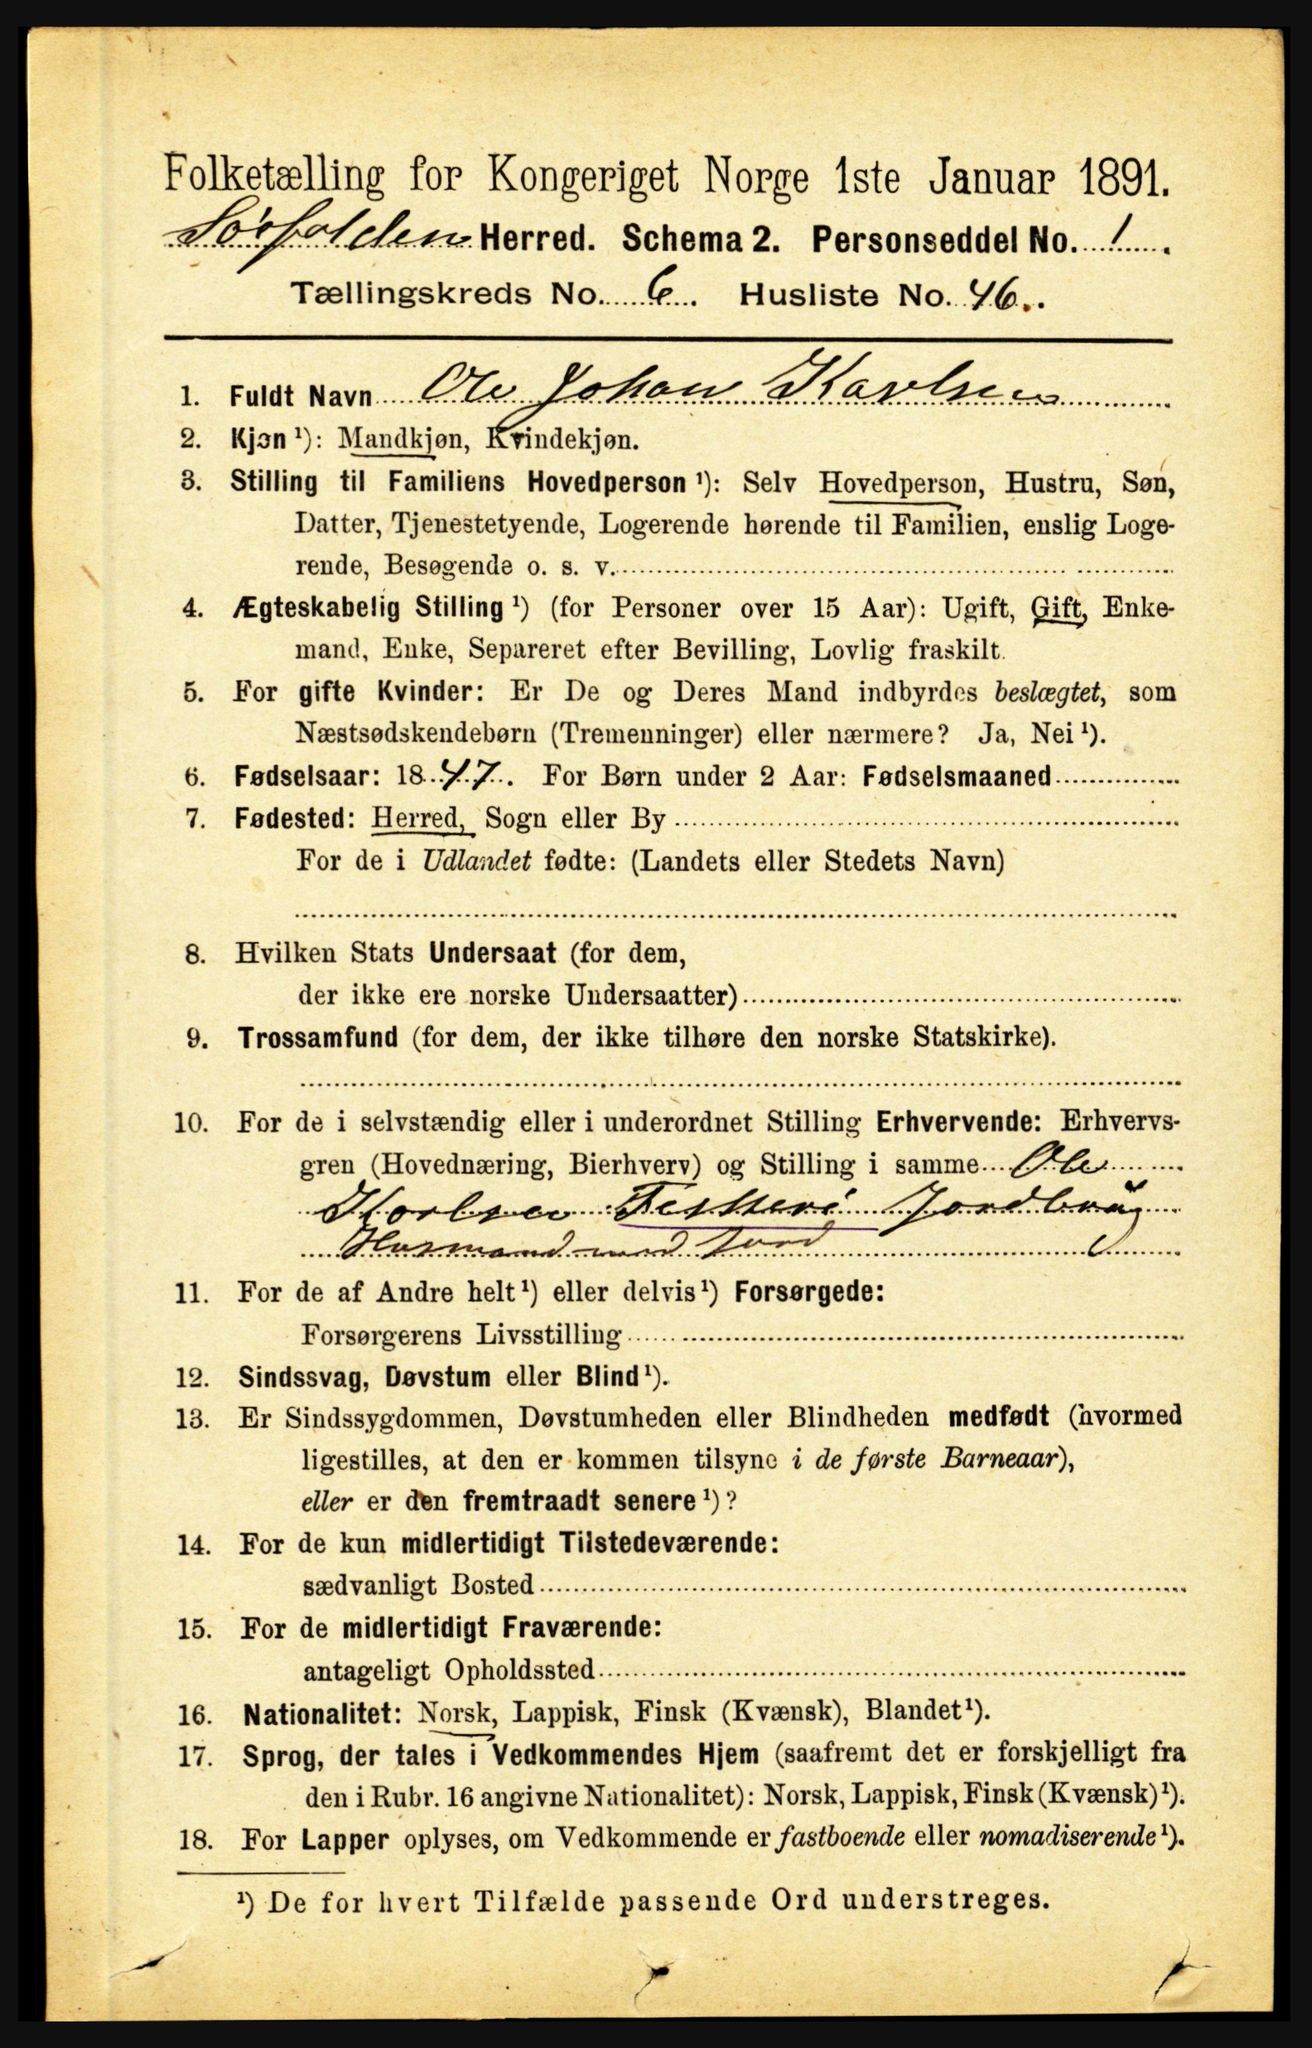 Folketælling for Kongeriget Norge 1ste Januar 1891.
Sørfolden Herred. Schema 2. Personseddel No. 1.
Tællingskreds No. 6. Husliste No. 46.
1. Fuldt Navn Ole Johan Karlsen
2. Kjøn¹): Mandkjøn, Kvindekjøn.
3. Stilling til Familiens Hovedperson¹): Selv Hovedperson, Hustru, Søn,
Datter, Tjenestetyende, Logerende hørende til Familien, enslig Loge-
rende, Besøgende o. s. v.
4. Ægteskabelig Stilling¹) (for Personer over 15 Aar): Ugift, Gift, Enke-
mand, Enke, Separeret efter Bevilling, Lovlig fraskilt.
5. For gifte Kvinder: Er De og Deres Mand indbyrdes beslægtet, som
Næstsødskendebørn (Tremenninger) eller nærmere? Ja, Nei¹).
6. Fødselsaar: 1847. For Børn under 2 Aar: Fødselsmaaned
7. Fødested: Herred, Sogn eller By
For de i Udlandet fødte: (Landets eller Stedets Navn)
8. Hvilken Stats Undersaat (for dem,
der ikke ere norske Undersaatter)
9. Trossamfund (for dem, der ikke tilhøre den norske Statskirke).
10. For de i selvstændig eller i underordnet Stilling Erhvervende: Erhvervs-
gren (Hovednæring, Bierhverv) og Stilling i samme Ole
Karlsen Fiskeri Jordbrug
Husmand med Jord
11. For de af Andre helt¹) eller delvis¹) Forsørgede:
Forsørgerens Livsstilling
12. Sindssvag, Døvstum eller Blind¹).
13. Er Sindssygdommen, Døvstumheden eller Blindheden medfødt (hvormed
ligestilles, at den er kommen tilsyne i de første Barneaar),
eller er den fremtraadt senere¹)?
14. For de kun midlertidigt Tilstedeværende:
sædvanligt Bosted
15. For de midlertidigt Fraværende:
antageligt Opholdssted
16. Nationalitet: Norsk, Lappisk, Finsk (Kvænsk), Blandet¹).
17. Sprog, der tales i Vedkommendes Hjem (saafremt det er forskjelligt fra
den i Rubr. 16 angivne Nationalitet): Norsk, Lappisk, Finsk (Kvænsk)¹).
18. For Lapper oplyses, om Vedkommende er fastboende eller nomadiserende¹).
¹) De for hvert Tilfælde passende Ord understreges.